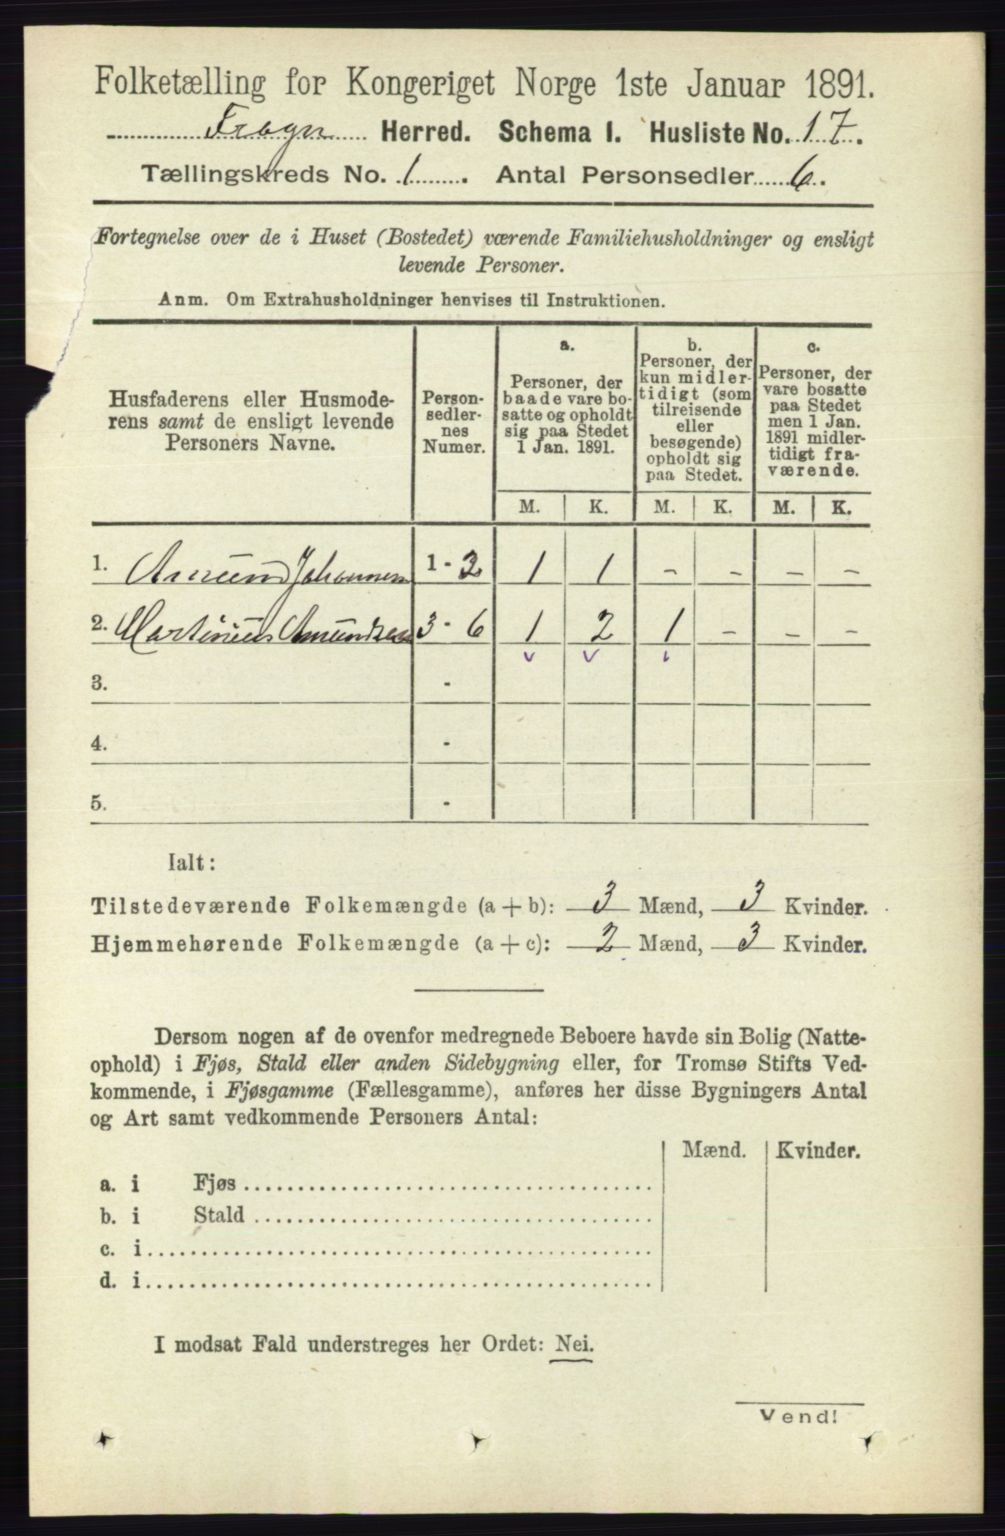 Folketælling for Kongeriget Norge 1ste Januar 1891.
Frogn Herred. Schema I. Husliste No. 17.
Tællingskreds No. 1. Antal Personsedler 6.
Fortegnelse over de i Huset (Bostedet) værende Familiehusholdninger og ensligt
levende Personer.
Anm. Om Extrahusholdninger henvises til Instruktionen.
Husfaderens eller Husmode-
rens samt de ensligt levende
Personers Navne.
Person-
sedler-
nes
Numer.
a.
Personer, der
baade vare bo-
satte og opholdt
sig paa Stedet
1 Jan. 1891.
b.
Personer, der
kun midler-
tidigt (som
tilreisende
eller
besøgende)
opholdt sig
paa Stedet.
c.
Personer, der
vare bosatte
paa Stedet
men 1 Jan.
1891 midler-
tidigt fra-
værende.
M. K. M. K. M. K.
1. Amund Johannesen 1 - 2 1 1 - - - -
2. Martinius Amundsen 3 - 6 1 2 1 - - -
3. -
4. -
5. -
Ialt:
Tilstedeværende Folkemængde (a + b): 3 Mænd, 3 Kvinder.
Hjemmehørende Folkemængde (a + c): 2 Mænd, 3 Kvinder.
Dersom nogen af de ovenfor medregnede Beboere havde sin Bolig (Natte-
ophold) i Fjøs, Stald eller anden Sidebygning eller, for Tromsø Stifts Ved-
kommende, i Fjøsgamme (Fællesgamme), anføres her disse Bygningers Antal
og Art samt vedkommende Personers Antal:
Mænd. Kvinder.
a. i Fjøs
b. i Stald
c. i
d. i
I modsat Fald understreges her Ordet: Nei.
Vend!